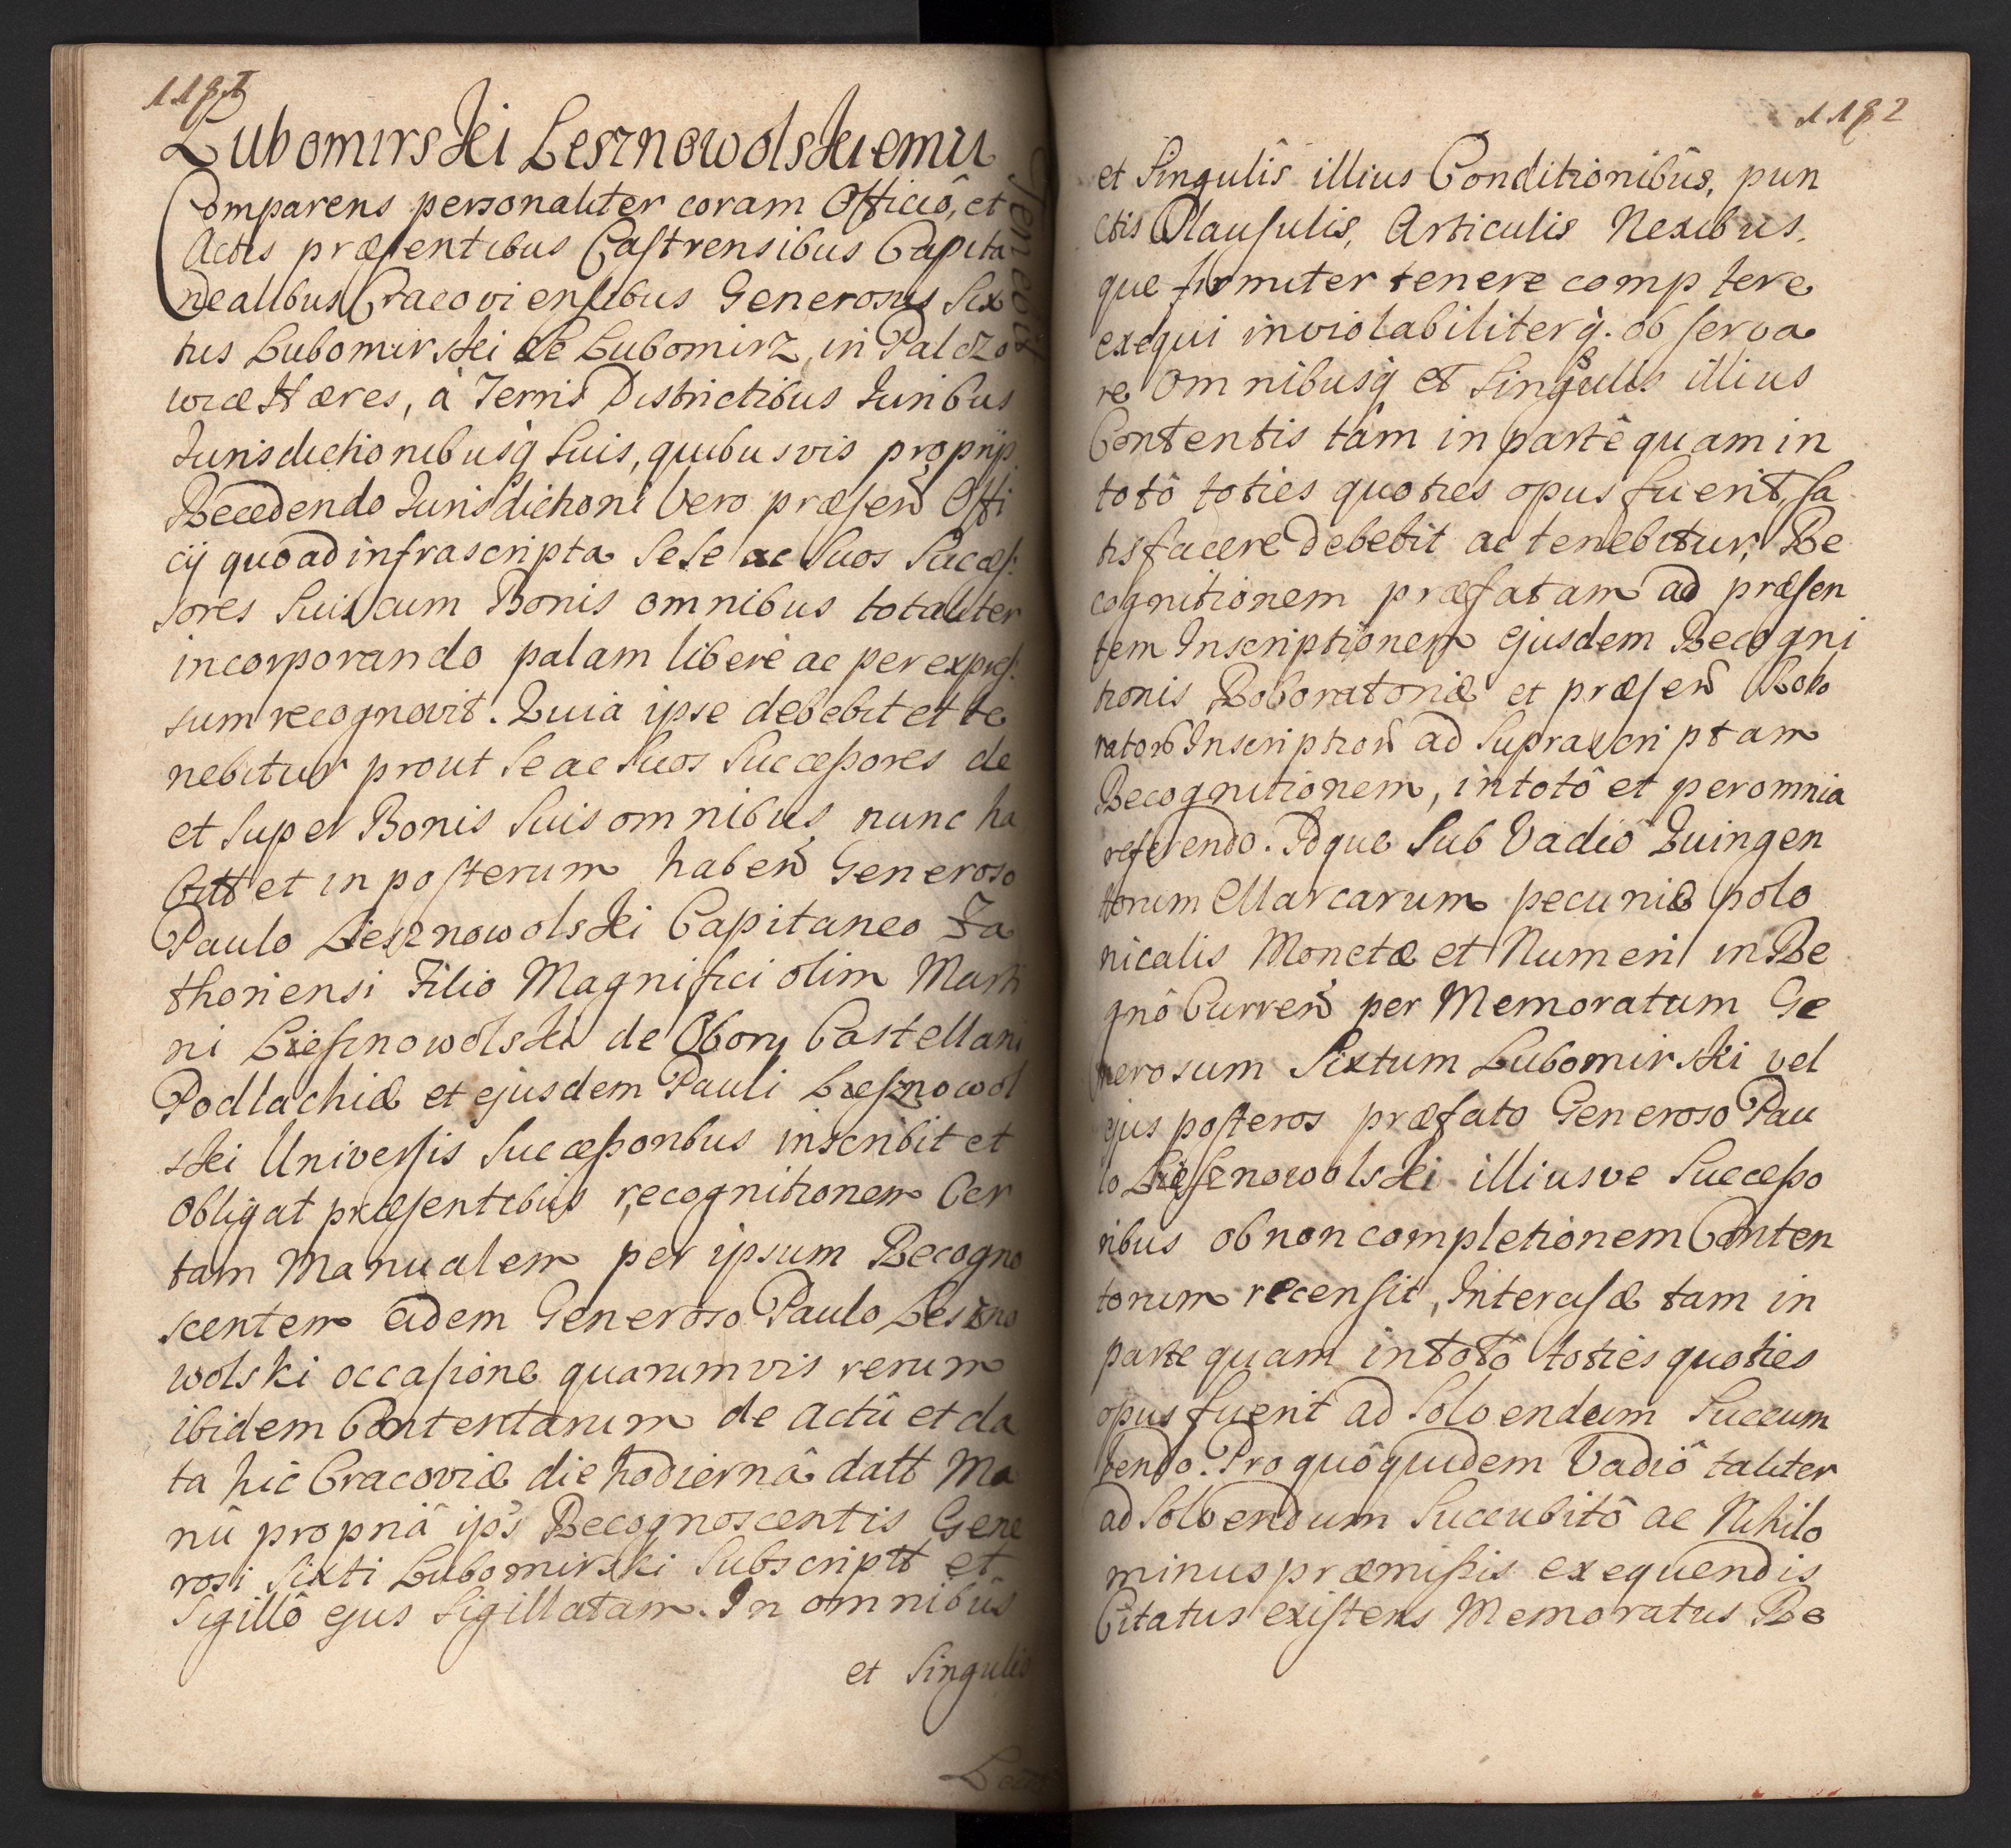 1181
Lubomirski Lesznowolskiemu
Comparens personaliter coram Officiô, et
Actis præsentibus Castrensibus Capita
nealibus Cracoviensibus Generosus Six
tus Lubomirski de Lubomirz, in Palczo
wice Hæres, à Terris Districtibus Juribus
Jurisdictionibusq́ Suis, quibusvis proprijs
Recedendo Jurisdictioni Vero præsen̄ Offi
cij quoad infrascripta Sese ac Suos Succes
sores Suis cum Bonis omnibus totaliter
incorporando palam liberè ac per expres
sum recognovit. Quia ipse debebit et te
nebitur prout Se ac Suos Successores de
et Super Bonis Suis omnibus nunc ha
bitt et in posterum haben̄ Generoso
Paulo Lesznowolski Capitaneo Za
thoriensi Filio Magnifici olim Marti
ni Liesznowolski de Obory Castellani
Podlachiæ et ejusdem Pauli Liesznowol
ski Universis Successoribus inscribit et
obligat præsentibus, recognitionem Cer
tam Manualem per ipsum Recogno
scentem eidem Generoso Paulo Leszno
wolski occasione quarumvis rerum
ibidem Contentarum de actû et da
ta hic Cracoviæ die hodiernâ datt Ma
nû propriâ ip̃s Recognoscentis Gene
rosi Sixti Lubomirski Subscriptt et
Sigillô ejus Sigillatam. In omnibûs
et Singulis
1182
et Singulîs illius Conditionibûs, pun
ctis Clausulis, Articulis Nexibus,
que firmiter tenere complere
exequi inviolabiliterq́. observa
re omnibusq́ et Singulis illius
Contentis tàm in partê quam in
totô toties quoties opus fuerit, sa
tisfacere debebit ac tenebitur, Re
cognitionem præfatam ad præsen
tem Inscriptionem ejusdem Recogni
tionis Roboratoriæ et præsen̄ Robo
rator̄ Inscription̄ ad Suprascriptam
Recognitionem, in totô et per omnia
referendo. Idque Sub Vadiô Quingen
torum Marcarum pecuniæ polo
nicalis Monetæ et Numeri in Re
gnô Curren̄ per Memoratum Ge
nerosum Sixtum Lubomirski vel
ejus posteros præfato Generoso Pau
lo Liesznowolski illiusve Successo
ribus ob non completionem Conten
torum recensit, Intercisæ tam in
parte quam in totô toties quoties
opus fuerit ad Solvendum Succum
bendo. Pro quô quidem Vadiô taliter
ad Solvendum Succubitô ac Nihilo
minus præmissis exequendis
Citatus existens Memoratus Re